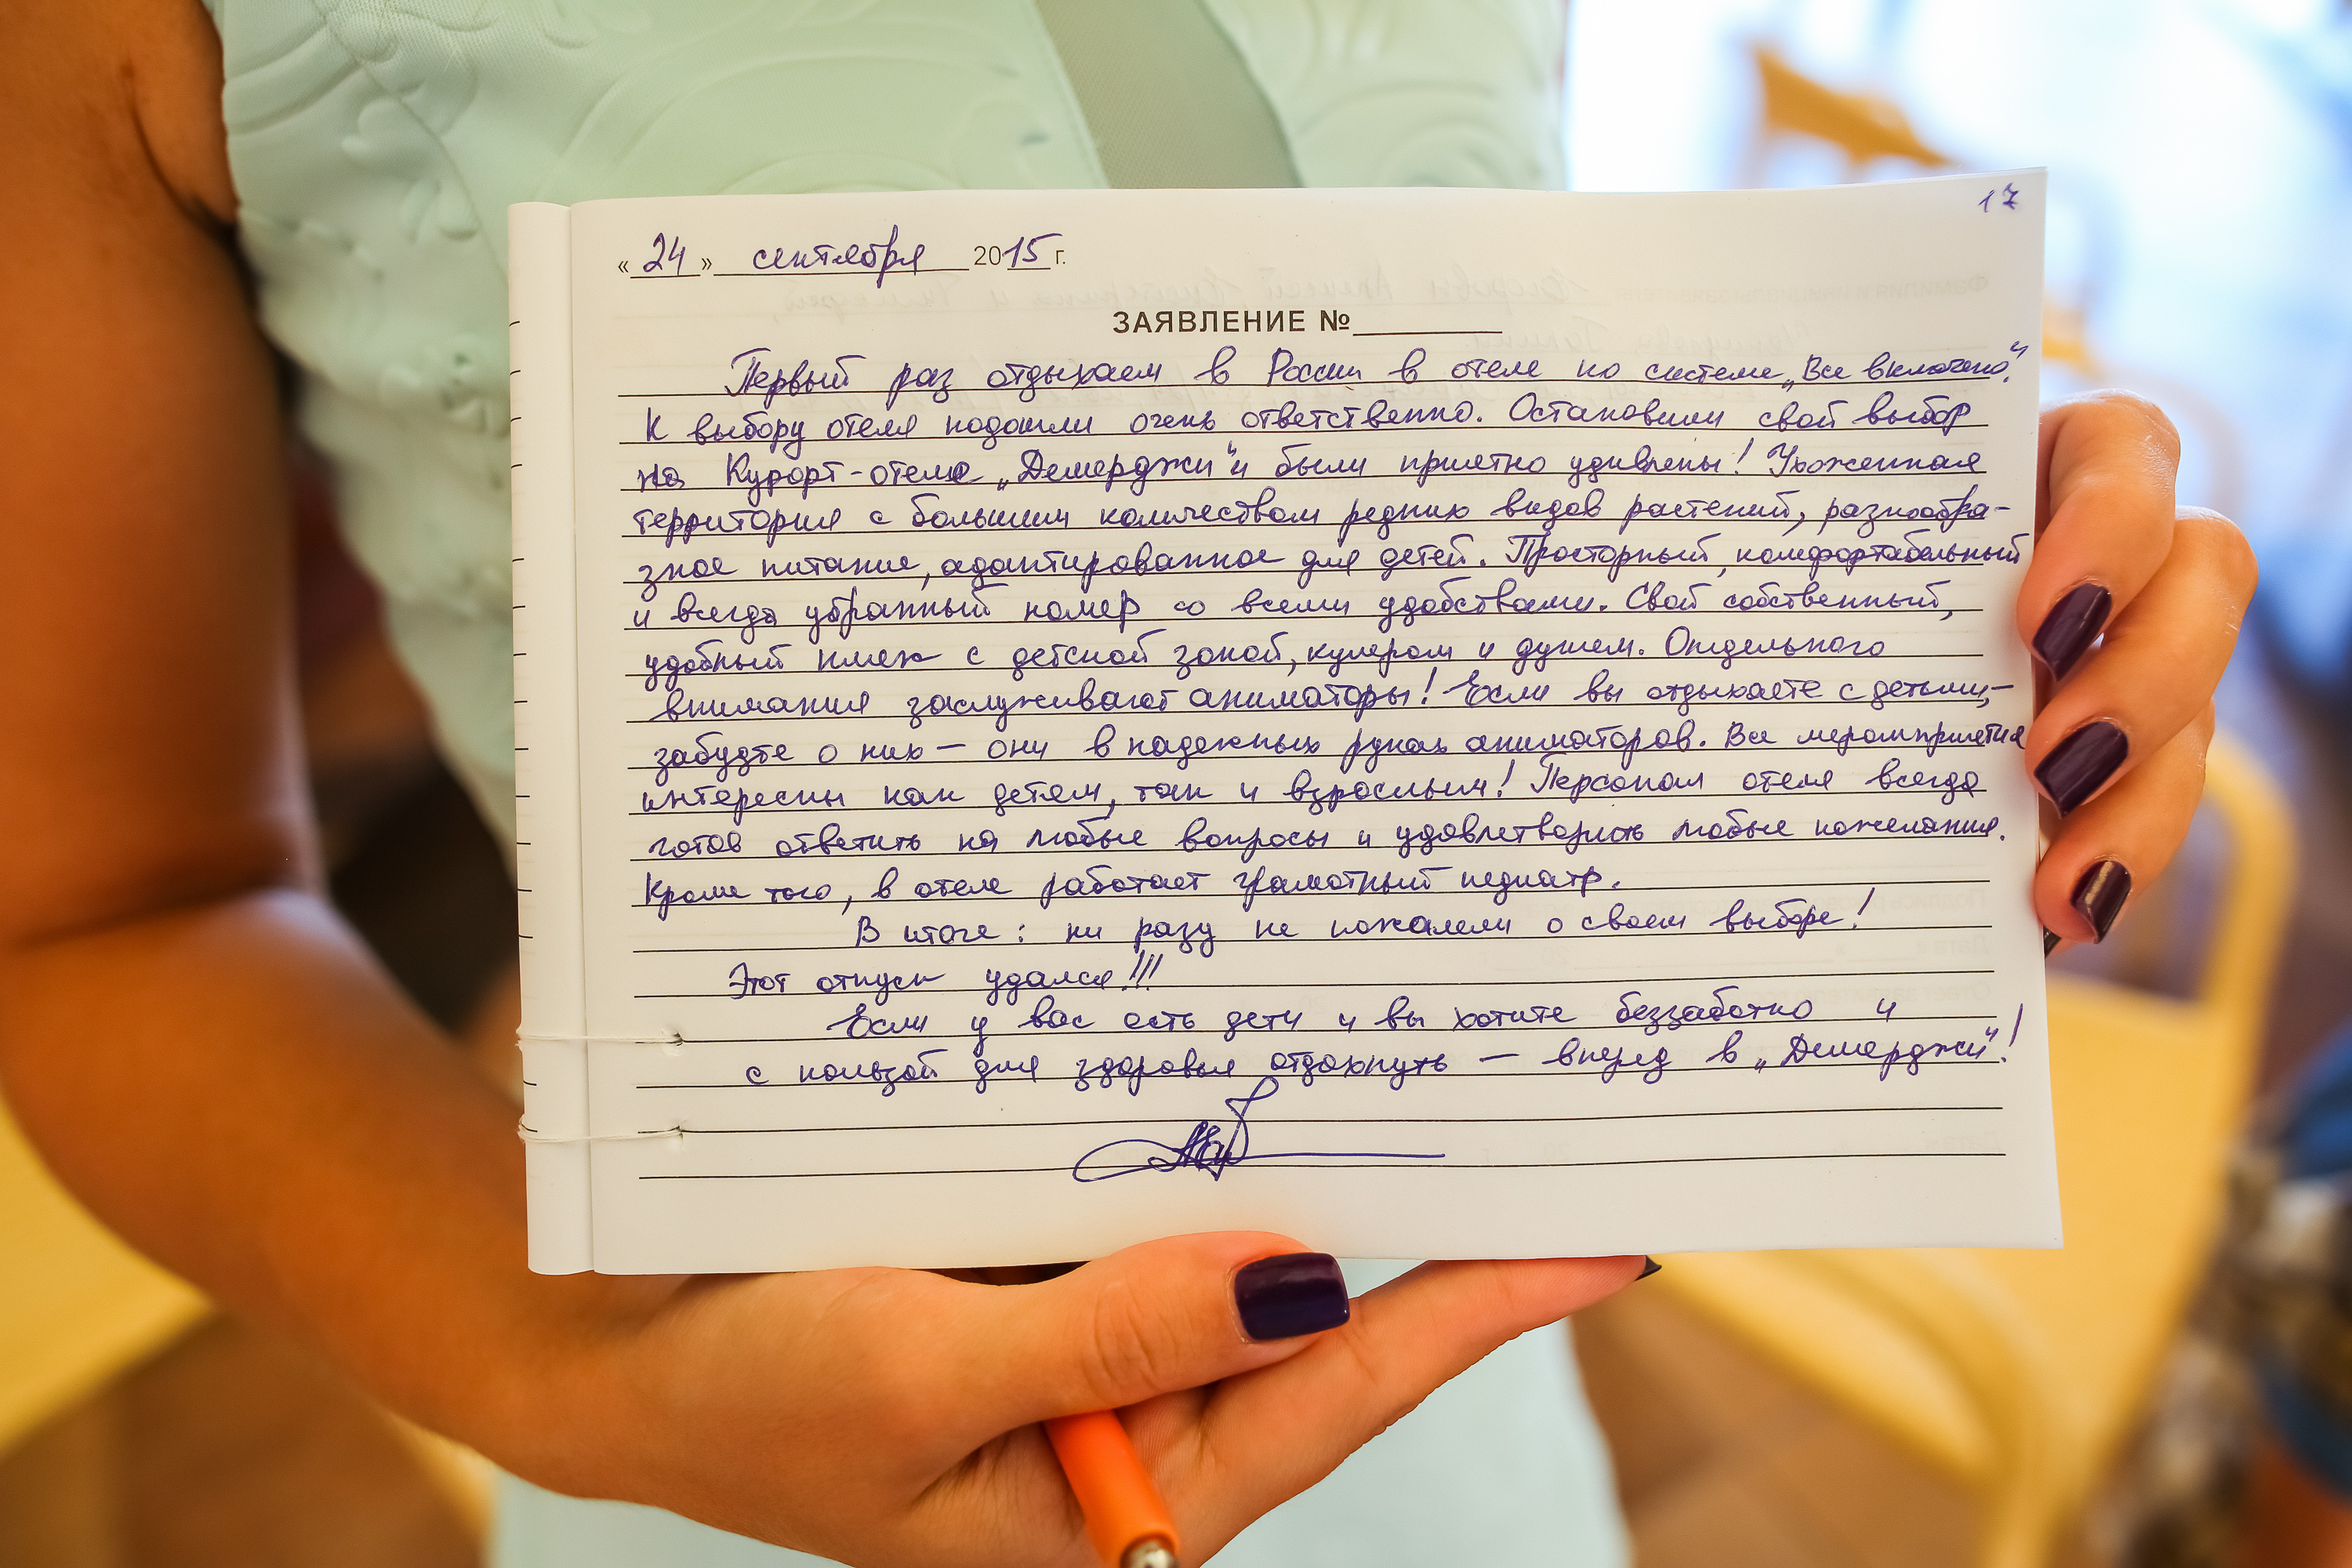 17
«24» сентября 2015 г.
ЗАЯВЛЕНИЕ №
Первый раз отдыхаем в России в отеле по системе „Все включено“.
К выбору отеля подошли очень ответственно. Остановили свой выбор
на Курорт-отеле „Демерджи“ и были приятно удивлены! Ухоженная
территория с большим количеством редких видов растений, разнообра-
зное питание, адаптированное для детей. Просторный, комфортабельный
и всегда убранный номер со всеми удобствами. Свой собственный,
удобный пляж с детской зоной, кулером и душем. Отдельного
внимания заслуживают аниматоры! Если вы отдыхаете с детьми, –
забудте о них – они в надежных руках аниматоров. Все мероприятия
интересны как детям, так и взрослым! Персонал отеля всегда
готов ответить на любые вопросы и удовлетворить любые пожелания.
Кроме того, в отеле работает грамотный педиатр.
В итоге: ни разу не пожалели о своем выборе!
Этот отпуск удался!!!
Если у вас есть дети и вы хотите беззаботно и
с пользой для здоровья отдохнуть – вперед в „Демерджи“!